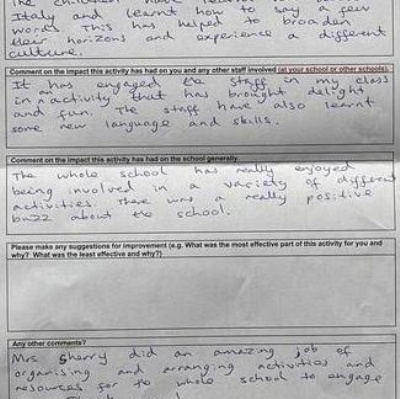 Italy and learnt how to say a few
words. This has helped to broaden
their horizons and experience a different
culture.
Comment on the impact this activity has had on you and any other staff involved (at your school or other schools).
It has engaged the staff in my class
in an activity that has brought delight
and fun. The staff have also learnt
some new language and skills.
Comment on the impact this activity has had on the school generally.
The whole school has really enjoyed
being involved in a variety of different
activities. There was a really positive
buzz about the school.
Please make any suggestions for improvement (e.g. What was the most effective part of this activity for you and
why? What was the least effective and why?)
Any other comments?
Mrs Sherry did an amazing job of
organising and arranging activities and
resources for the whole school to engage